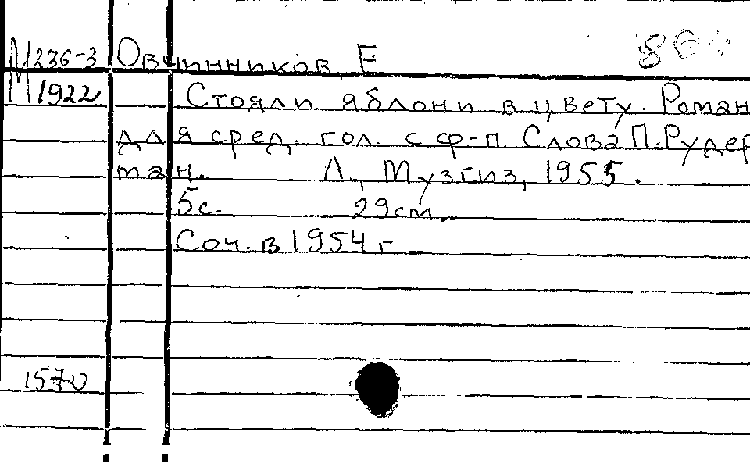 М236-3 Овчинников, Е
М1922 Стояли яблони в цвету. Роман
для сред. гол. с ф-п. Слова П. Рудер
ман. Л., Музгиз, 1955.
5с. 29см.
Соч. в 1954 г
1570